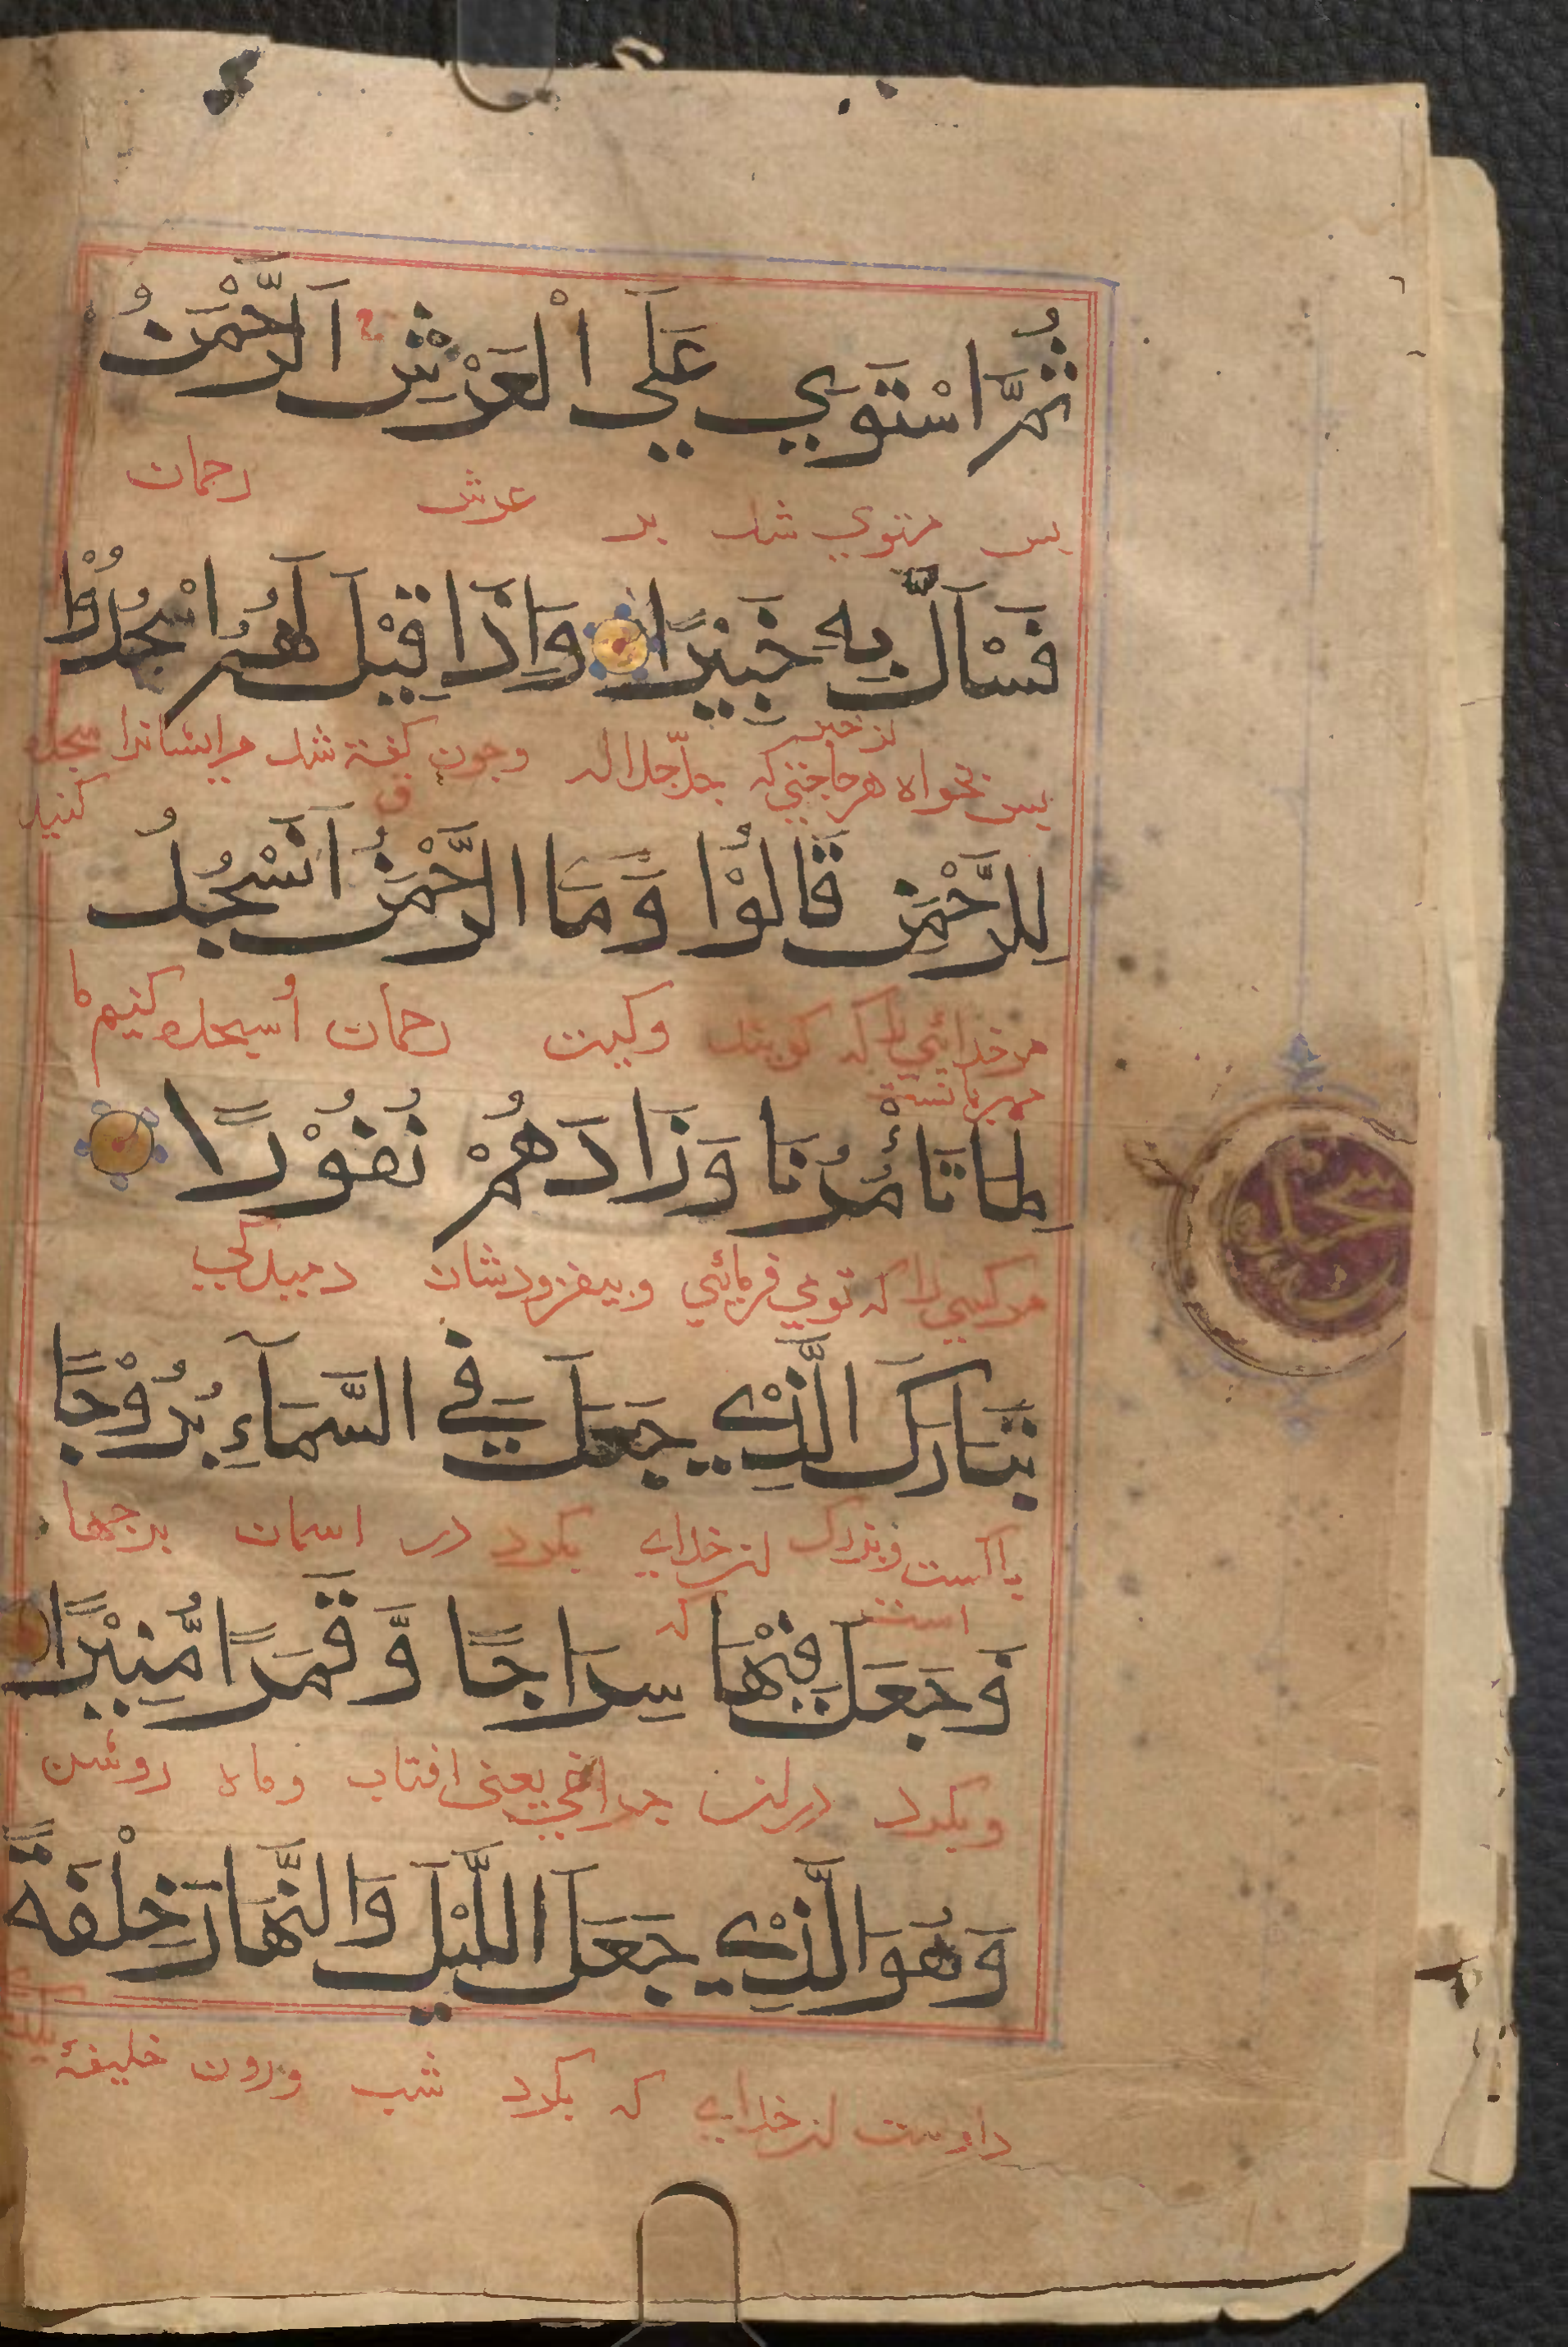 ثُمَّ اسْتَوَي عَلَي الْعَرْشِ اَلرَّحْمٰنُ
بس مستوي شد بر عرش رحمان
فَسْاَلْ بِهٖ خَبِيْرًا وَاِذَا قِيْلَ لَهُمُ اسْجُدُوْا
بس بخواه هر حاجتي كه جل جلاله وجون كفته شد مرايشانرا سجده كنيد
لِلرَّحْمٰنِ قَالُوْا وَمَا الرَّحْمٰنُ اَنَسْجُدُ
مر خدائي را كه كويند وكيست رحمان اسجده كنيم ما
لِمَا تَاْمُرُنَا وَزَادَهُمْ نُفُوْرًا
مر كسي را كه تو مي فرمائي وبيفزودشان رميدكي
تَبَارَكَ الَّذِيْ جَعَلَ فِي السَّمَآءِ بُرُوْجًا
باكست وبزرك ان خداي بكرد در اسمان برجها
است كه
وَّجَعَلَ فِيْهَا سِرَاجًا وَّقَمَرًا مُّنِيْرًا
وبكرد دران جراغي يعنى افتاب وماه روشن
وَهُوَ الَّذِيْ جَعَلَ اللَّيْلَ وَالنَّهَارَ خِلْفَةً
واوست ان خداي كه بكرد شب وروز خليفة